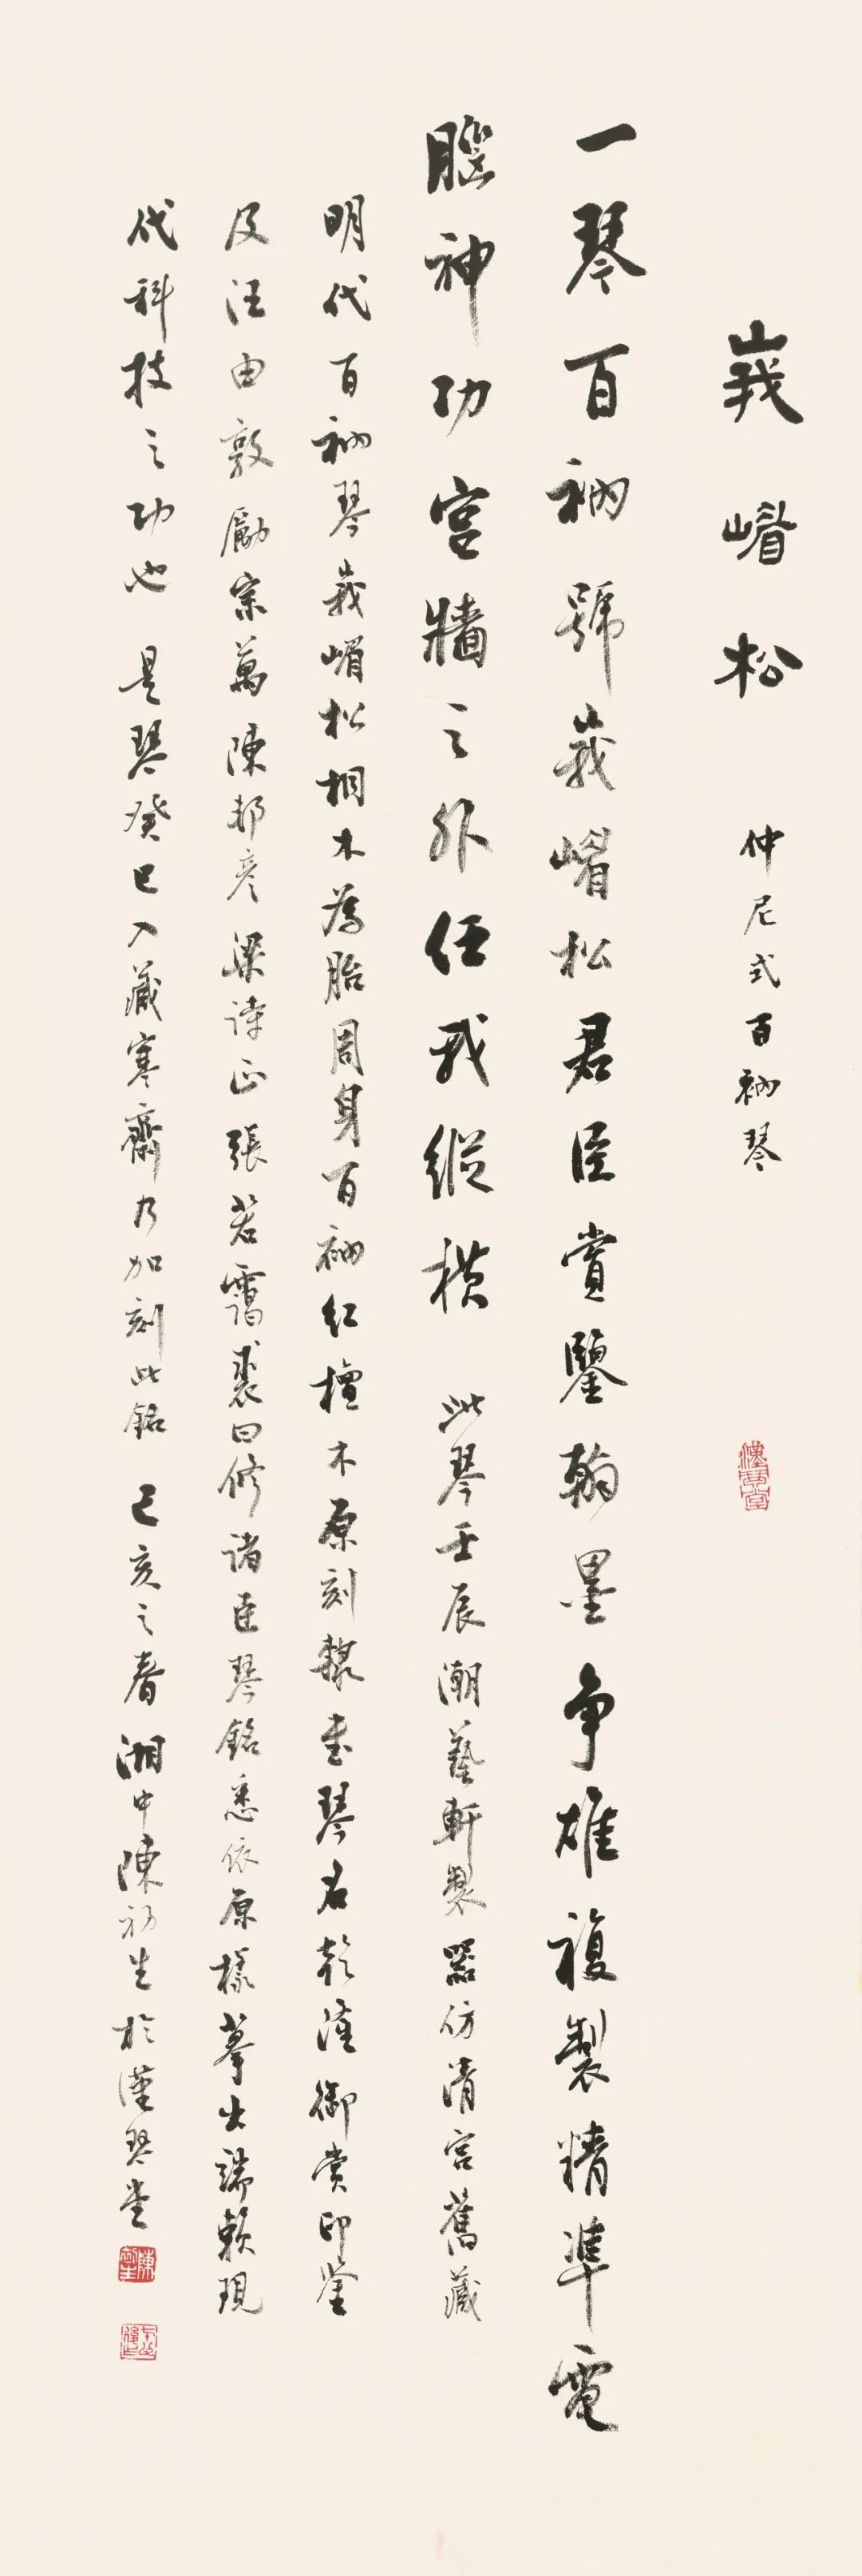 峩嵋松 仲尼式百衲琴
漢琴堂
一琴百衲號峩嵋松君臣賞鑒翰墨争雄複製精準電
腦神功宫牆之外任我縱横 此琴壬辰潮藝軒製器仿清宫舊藏
明代百衲琴峩嵋松桐木為胎周身百衲紅檀木原刻隸書琴名乾隆御赏印鉴
及汪由敦勵宗萬陳邦彦梁诗正張若靄裘曰修诸臣琴銘悉依原樣摹出端赖現
代科技之功也 是琴癸巳入藏寒齋乃加刻此銘 己亥之春湘中陳初生於漢琴堂
陳初生